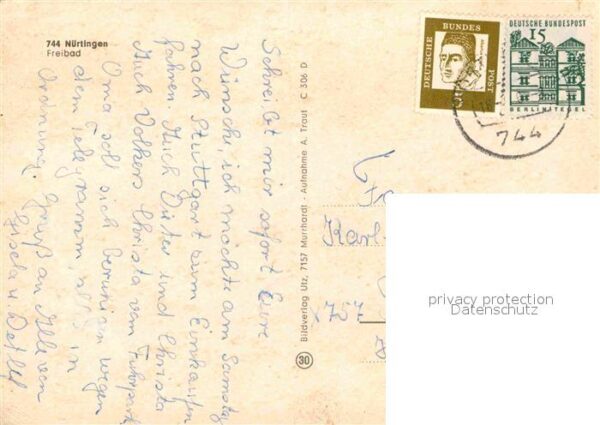 744 Nürtingen
Freibad
Schreibt mir sofort Eure
Wünsche, ich möchte am Samstag
nach Stuttgart zum Einkaufen
fahren. Auch Dieter und Christa
Auch Volkers Christa vom Fuhrpark
Oma soll sich beruhigen wegen
dem Telegramm, alles in
Ordnung. Gruß an Alle von
Gisela u. Detlef.
Bildverlag Utz, 7157 Murrhardt · Aufnahme A. Traut C 306 D
30
DEUTSCHE
BUNDES
POST
DEUTSCHE BUNDESPOST
15
BERLIN/TEGEL
744
Karl-
privacy protection
Datenschutz